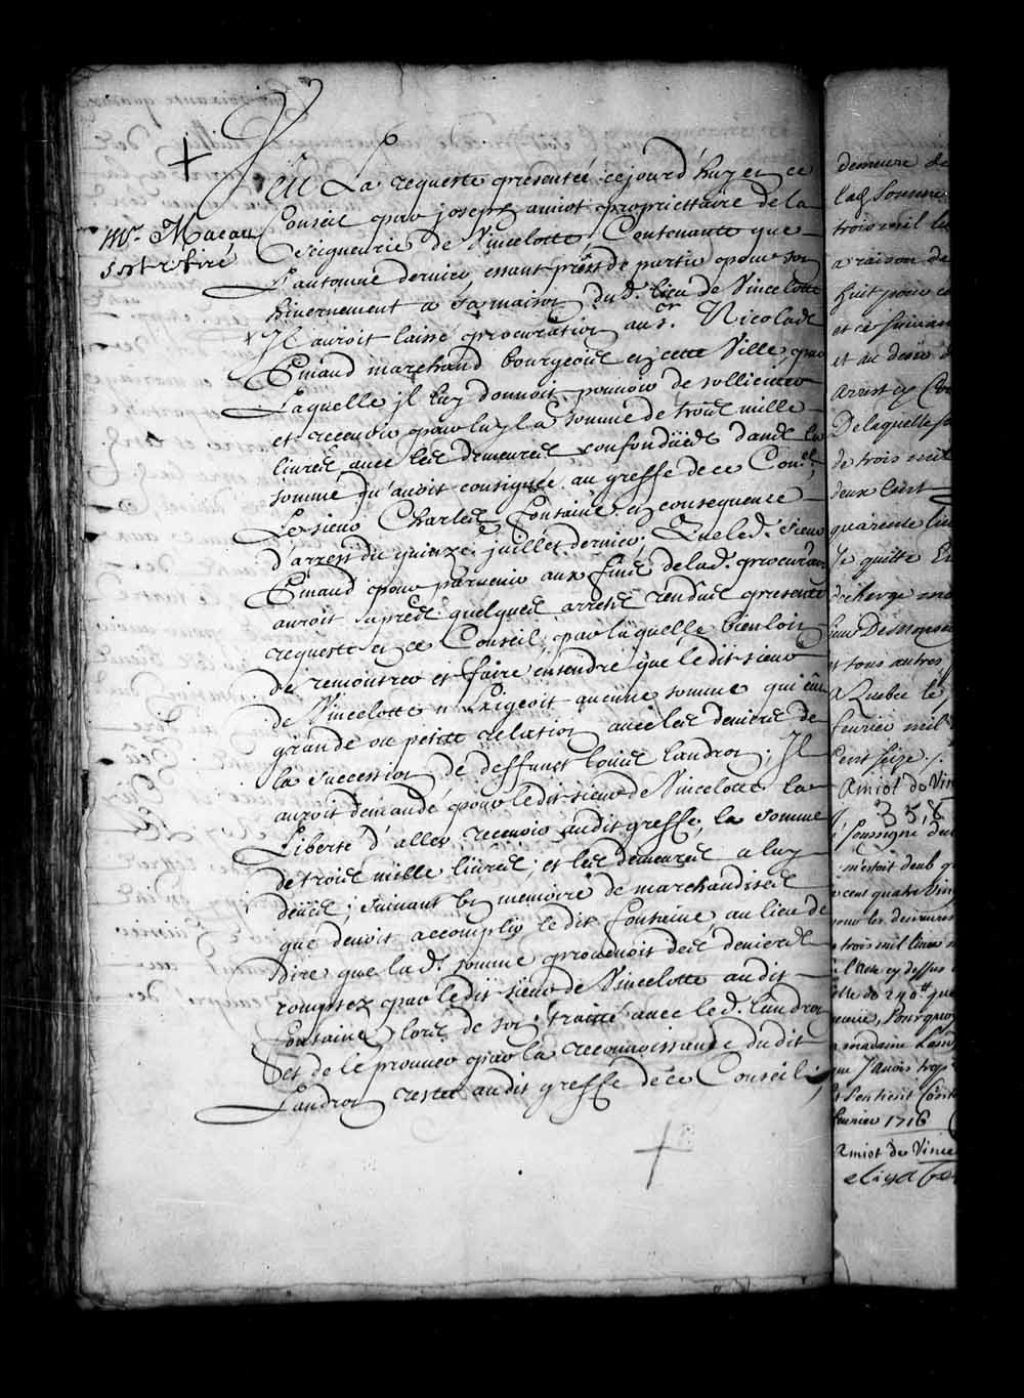 Veu La requeste presentée cejourd'huy en ce
Conseil par joseph amiot proprietaire de la
Mr. Macart
sest retiré
Seigneurie de Vincelotte, Contenante que
L'automne dernier estant prest de partir pour son
hivernement a sa maison du d. lieu de Vincelotte
Il auroit laissé procuration au sr. Nicolas
Pinaud marchand bourgeois en cette Ville, par
Laquelle jl luy donnoit pouvoir de solliciter
et recevoir pour luy La somme de trois mille
livres avec les demeures confondües dans la
somme qu'avoit consignée au greffe de ce Conel.
Le sieur Charles Fontaine en consequence
d'arrest du quinze juillet dernier; Que le d. sieur
Pinaud pour parvenir aux fins de lad. procuraon
auroit apres quelques arrests rendus presenté
requeste en ce Conseil, par laquelle bien loin
de remontrer et faire entendre que ledit sieur
de Vincelotte n'Exigeoit aucune somme qui eut
grande ou petite relation avec les deniers de
la succession de deffunct Louis Landron; Il
auroit demandé pour ledit sieur de Vincelotte la
Liberté d'aller recevoir audit greffe, la somme
de trois mille livres; et les demeures a luy
deües; suivant un memoire de marchandises
que devoit accomplir ledit Fontaine, au lieu de
dire que la d. somme provenoit des deniers
comptez par ledit sieur de Vincelotte audit
Fontaine lors de son traitté avec le d. Landron
et de le prouver par la reconnoissance dudit
Landron restée audit greffe de ce Conseil;
demeure de
lad. somme
trois mil
a raison de
huit pour
et ce suivant
et au desir
arrest
De laquelle
de trois mil
deux cent
quarente
Je quitte
décharge
et tous autres
A Quebec le
fevrier mil
cent seize
Amiot de Vin
358
soussigné
cent quatre vin
pour les demeures
trois mil livres
l'acte cy dessus
de 240tt que
Pourquoy
madame Lan
que J'avois
fevrier 1716
Amiot de Vince